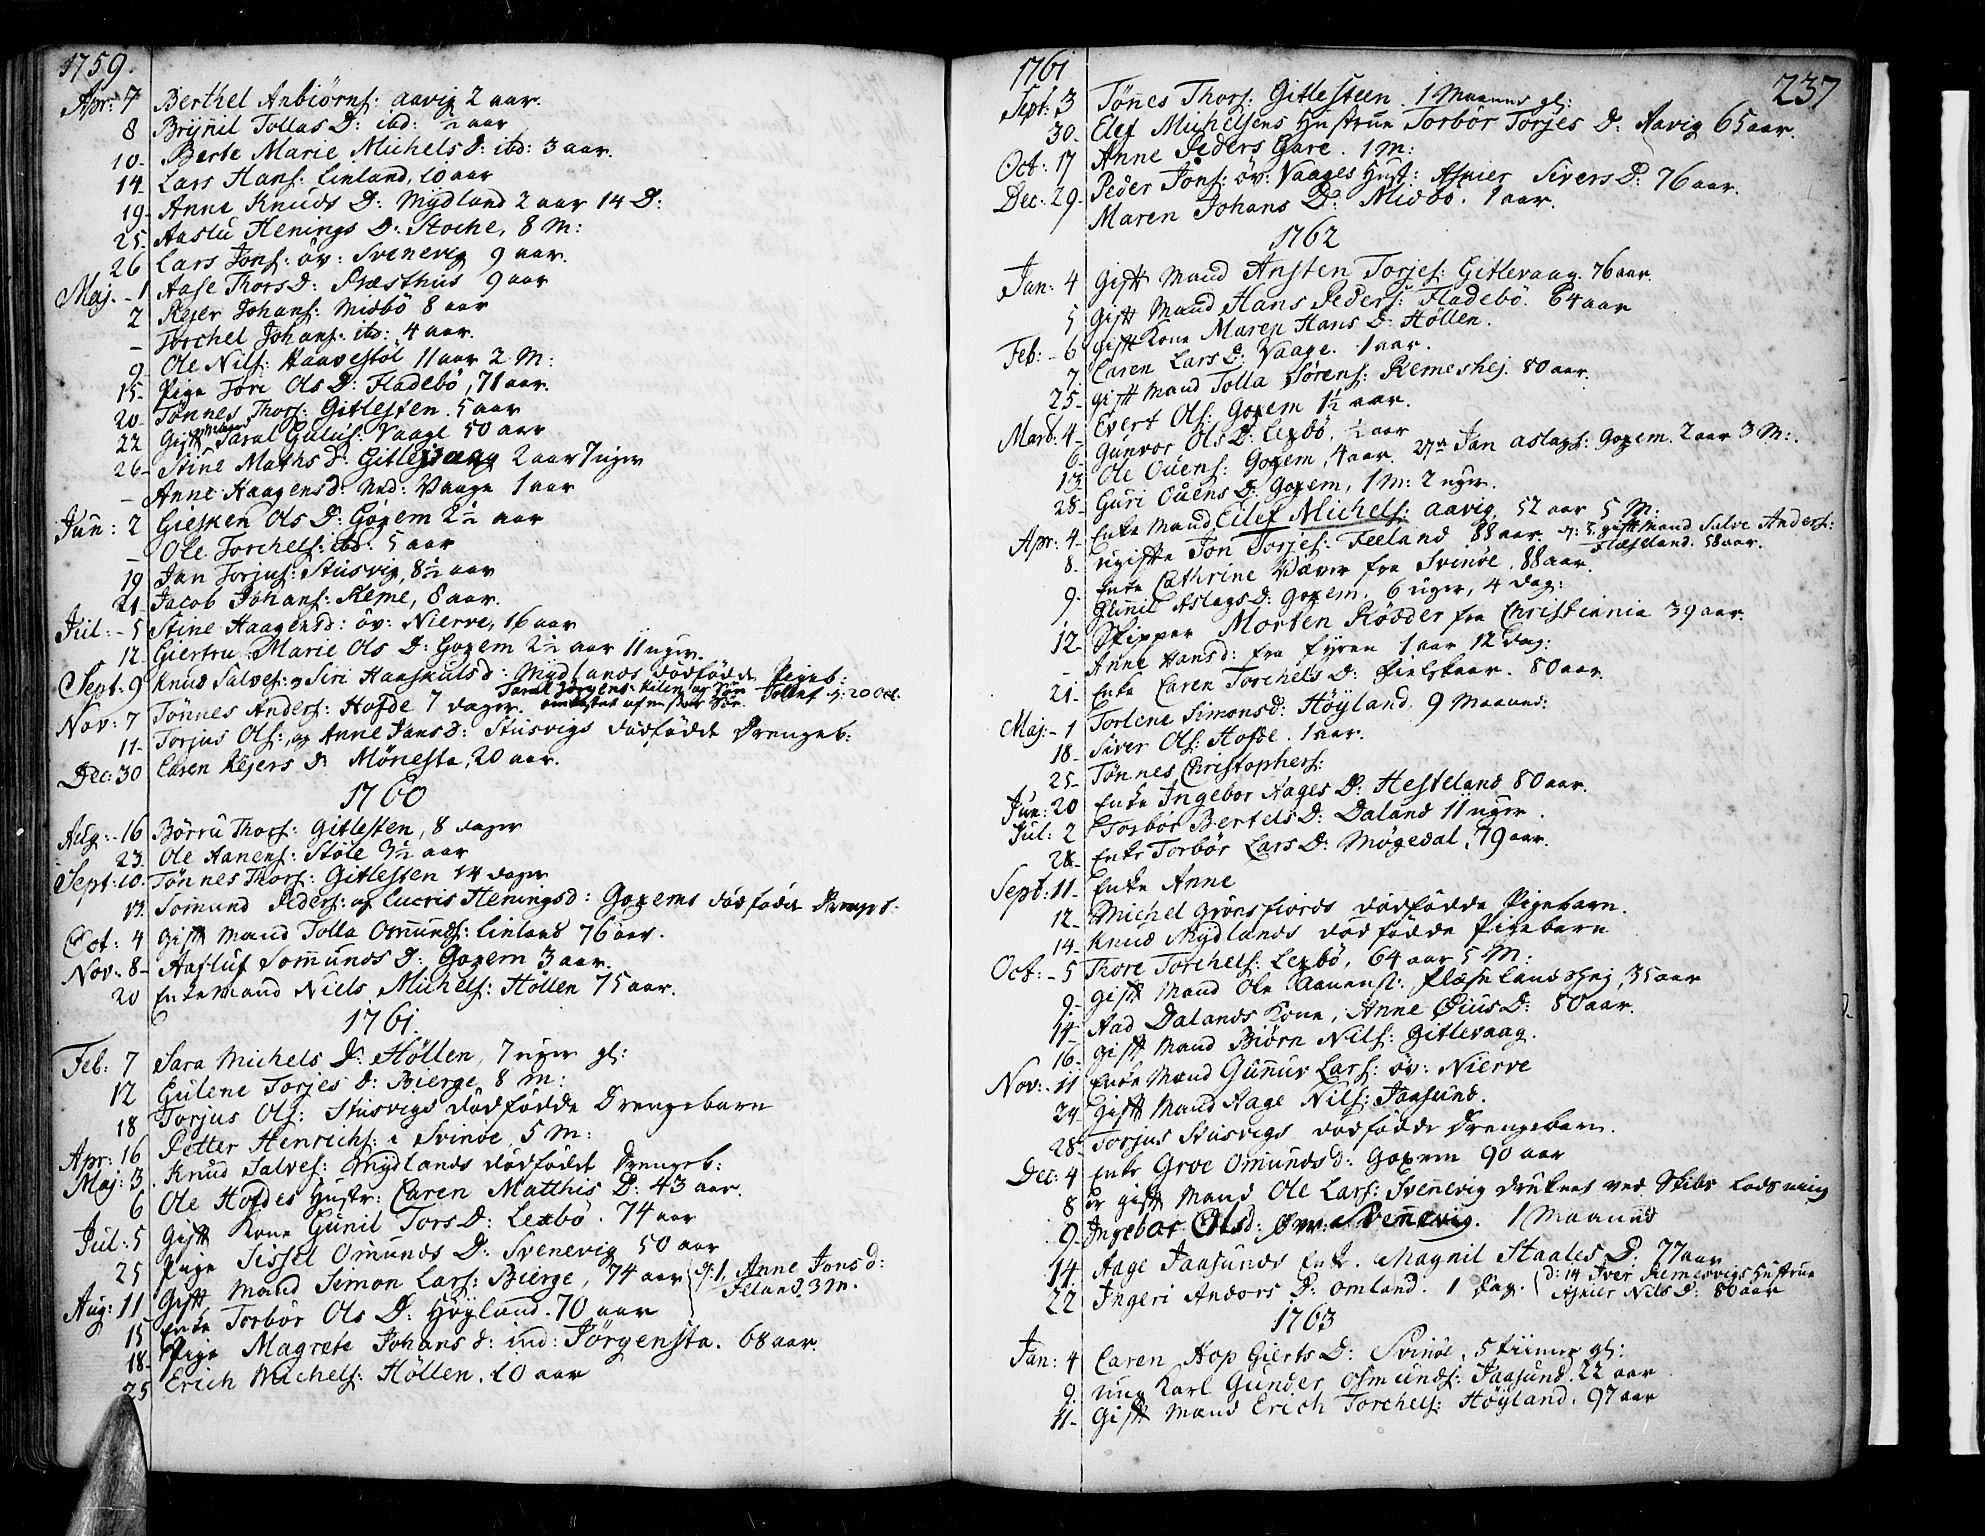 1759.
Apr: 7 Berthel Anbiörns: Aavig 2 aar.
8 Brÿnil Tollas D: ibd: ½ aar
10- Berte Marie Michels D: ibd: 3 aar.
14 Lars Hans: Linland, 10 aar
19- Anne Knuds D: Mydland 2 aar 14 D:
25- Aaslu Henings D: Stoche, 8 M:
26 Lars Jons: öv: Svenevig 9 aar.
Maj. - 1 Aase Thors D: Præsthus 9 aar
2 Rejer Johans: Midbö 8 aar
- Torchel Johans: ibd: 4 aar.
9- Ole Nils: Haavestöl 11 aar 2 M:
15- Pige Tore Ols D: Fladebö, 71 aar.
20- Tönnes Thors: Gitlesten. 5 aar
22 Gift Taral Guluf: Vaage 50 aar
26- Stine Maths d: Gitlevaag 2 aar 7 uger
- Anne Haagensd: Ned: Vaage 1 aar
Jun: 2 Giesken Ols D: Goxem 2½ aar
- Ole Torchels: ibd: 5 aar
19 Jan Torjus: Stusvig, 8½ aar
21- Jacob Johans: Reme, 8 aar.
Jul: - 5 Stine Haagensd: öv: Nierve, 16 aar
12- Giertru Marie Ols D: Goxem 2½ aar 11 uger.
Sept: 9 Knud Salves: og Siri Haaskulsd: Mydlands dödfödde Pigeb:
Taral Jörgens: Kilen og Sön Tollef d: 20 Oct.
Nov: 7 Tönnes Anders: Hofde 7 dager.
11- Torjus Ols: og Anne Jansd: Stusvigs dödfödde Drengeb:
Dec: 30 Caren Rejers D: Mönesta, 20 aar.
1760
Aug: - 16 Börru Thors: Gitlesten, 8 dager
23. Ole Aanens: Stöle 3½ aar
Sept: 10- Tönnes Thors: Gitlesten 14 dager
13. Tomund Peders: og Lucris Heningsd: Goxems dödfödde Drengeb:
Oct: 4 Gift Mand Tolla Omunds: Linland 76 aar.
Nov: 8- Aasluf Tomunds D: Goxem 3 aar.
20 Enkemand Niels Michels: Höllen 75 aar.
1761.
Feb: 7 Sara Michels D: Höllen, 7 uger gl:
12 Gulene Torjes D: Bierge, 8 M:
18 Torjus Ols: Stusvigs dödfödde Drengebarn
Apr: 16 Petter Henrichs: i Svinöe, 5 M:
Maj: 3. Knud Salves: Mydlands dödfödde Drengeb:
6 Ole Hofdes Hustr: Caren Matthis D: 43 aar.
Jul: 5 Gift Kone Gunil Tors D: Lexbö. 74 aar
25 Pige Sissel Omunds D: Svenevig 50 aar
Aug: 11 Gift Mand Simon Lars: Bierge, 74 aar { d: 1, Anne Jons d:
Feland, 3 M.
15 Enke Torbör Ols D: Höyland. 70 aar
18- Pige Magrete Johans d: ind: Jörgensta. 68 aar.
25 Erich Michels: Höllen. 10 aar
237
1761
Sept: 3 Tönes Thors: Gitlesteen. 1 Maaneds gl:
30. Elef Michelsens Hustrue Torbör Torjes D: Aavig 65 aar.
Oct: 17 Anne Peders Gare. 1 M:
Dec: 29- Peder Jons: öv: Vaages Hust: Asnier Sivers D: 76 aar.
Maren Johans D: Midbö. 1 aar.
1762
Jan: 4 Gift Mand Ansten Torjes: Gitlevaag. 76 aar.
5 Gift Mand Hans Peders: Fladebö. 64 aar
Feb: - 6 gift Kone Maren Hans D: Höllen.
7. Caren Lars D: Vaage. 1 aar.
25- gift Mand Tolla Sörens: Remeshej. 80 aar.
Mard: 4- Evert Ols: Goxem 1½ aar.
6- Gunvor Ols D: Lexbö. ½ aar
13- Ole Ouens: Goxem, 4 aar. Jan Aslags: Goxem. 2 aar 3 M:
28- Guri Ouens D: Goxem, 1 M: 2 uger.
Apr: 4- Enke Mand Eilef Michels: Aavig, 52 aar 5 M:
8. ugifte Jon Torjes: Feeland 88 aar. d: 5 giftMand Salve Anders:
Flæseland. 58 aar.
9. Enke Cathrine Væver fra Svinöe, 88 aar.
Gunil Aslags D: Goxem. 6 uger, 4 dag:
12- Skipper Morten Rödder fra Christiania 39 aar.
- Anne Hansd: fra Fyren 1 aar 12 dag:
21- Enke Caren Torchels D: Fielskaar. 80 aar.
Maj: - 1 Torlene Simonsd: Höyland, 9 Maaned:
18- Siver Ols: Hofde. 1 aar.
25- Tönnes Christophers:
Jun: 20 Enke Ingebor Aages D: Hesteland 80 aar.
Jul: 2 Torbör Bertels D: Daland 11 uger.
28- Enke Torbör Lars D: Mögedal, 79 aar.
Sept: 11- Enke Anne
12- Michel Grönsfiords dödfödde Pigebarn.
14- Knud Mydlands dödfödde Pigebarn
Oct: - 5 Thore Torchels: Lexbö, 64 aar 5 M:
9- Gift Mand Ole Aanens: Flæselandshej, 35 aar
14- Aad Dalands Kone, Anne Öius D: 80 aar.
16- Gift Mand Biörn Nils: Gitlevaag.
Nov: - 11 Enke Mand Gunuv Lars: öv: Nierve
24- Gift Mand Aage Nils: Jaasund.
28- Torjus Stusvigs dödfödde Drengebarn.
Dec: 4 Enke Groe Omunds d: Goxem 90 aar
8 er gift Mand Ole Lars: Svenevig druknet ved Skibs Lodsning
9- Ingebor Olsd: Svennevig. 1 Maaned
14 Aage Jaasunds Enke. Magnil Staales D: 77 aar
22 Ingeri Andors D: Omland. 1 Dag. { d: 14 Iver Remesvigs Hustrue
Asnier Nils D: 80 aar
1763
Jan: 4 Caren Hop Gierts D: Svinöe, 5 tiimer gl:
9. ung Karl Gunder Osmunds: Jaasund. 22 aar
11- Gift Mand Erich Torchels: Höyland. 97 aar